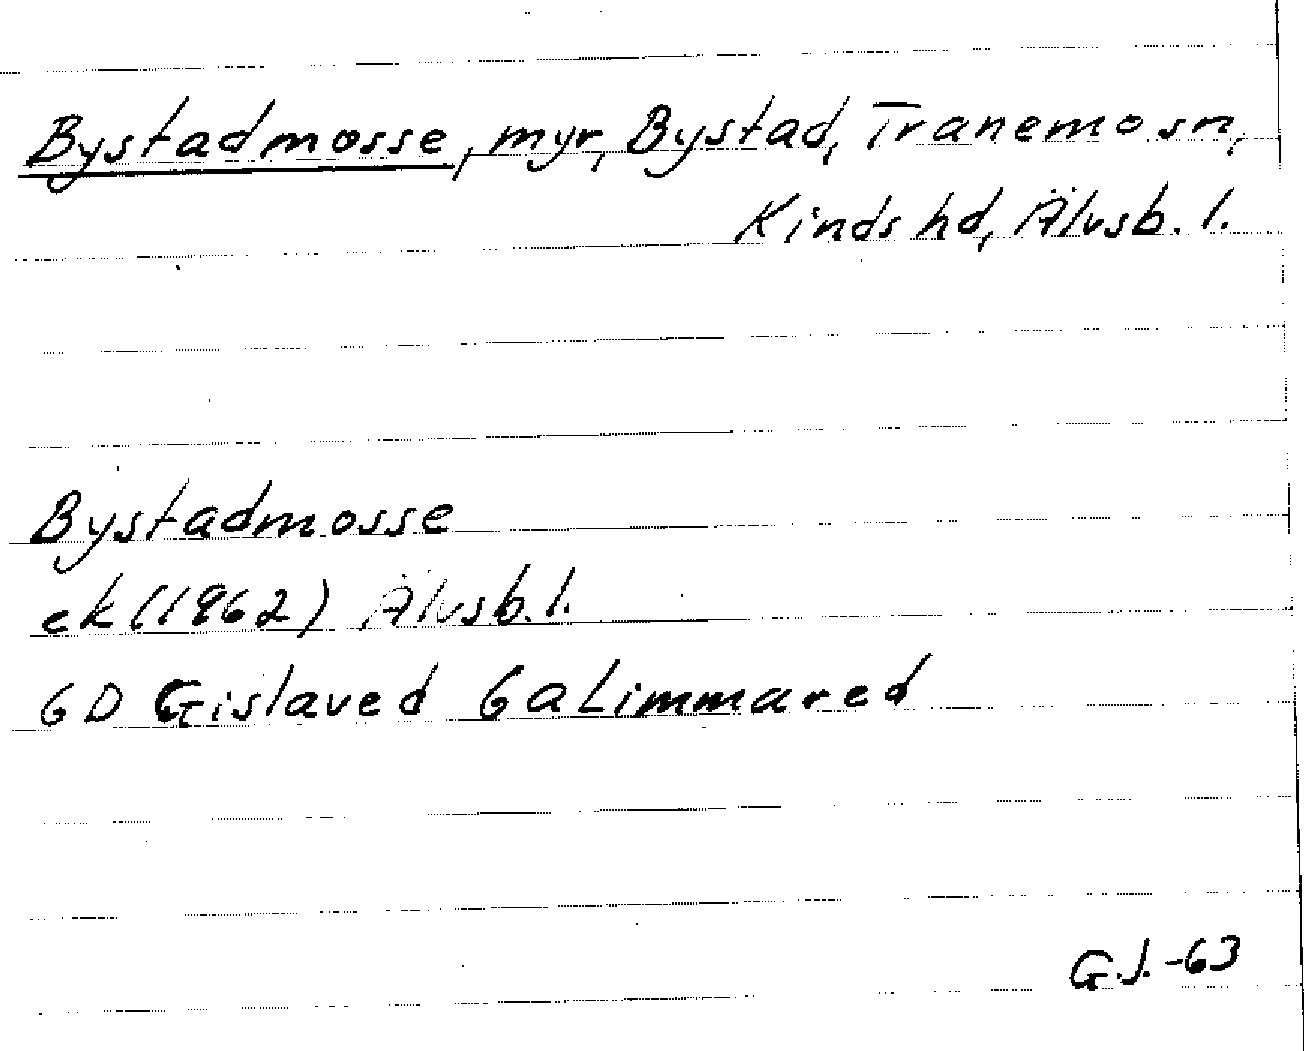 Bystadmosse, myr, Bystad, Tranemo sn,
Kinds hd, Älvsb. l.
Bystadmosse
ek (1962) Älvsb. l.
6D Gislaved 6a Limmared
G.J. -63